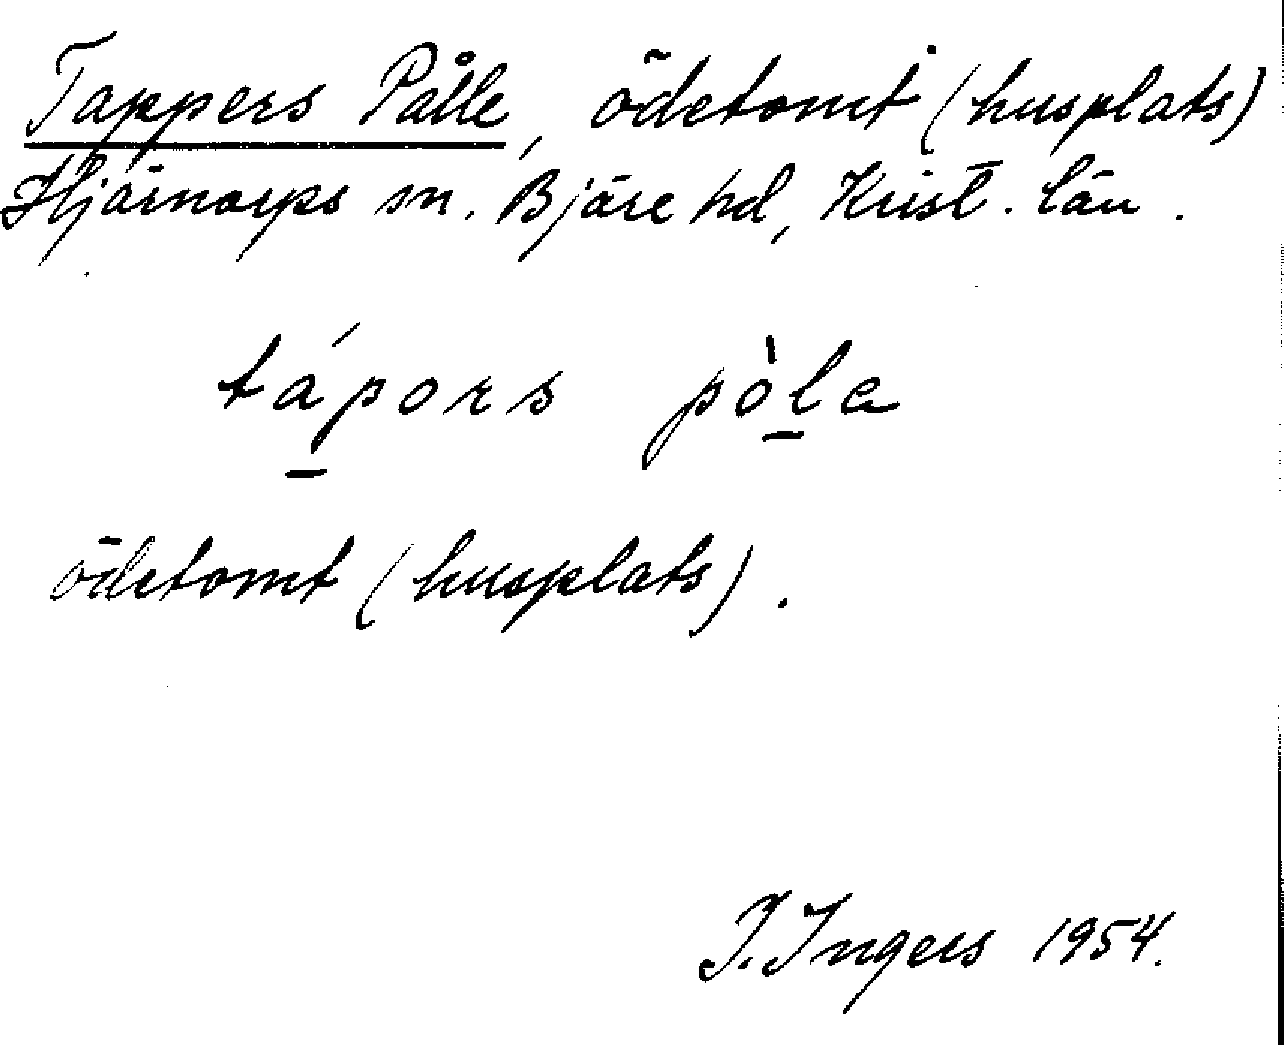 Tappers Pålle, ödetomt (husplats)
Hjärnarps sn. Bjäre hd, Krist. län.
tápors pòla
ödetomt (husplats).
I. Ingers 1954.